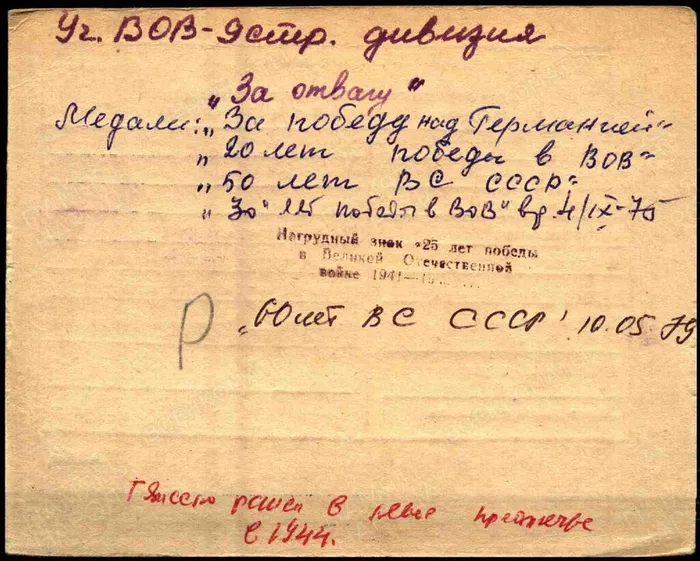 Уч. ВОВ - Эстр. дивизия
„За отвагу"
Медали: „За победу над Германией"
„20 лет победы в ВОВ"
„50 лет ВС СССР"
„30 лет победы в ВОВ" вр. 4/IX-75
Нагрудный знак «25 лет победы
в Великой Отечественной
войне 1941—
Р „60 лет ВС СССР" 10.05.79
Тяжело ранен в левое предплечье
в 1944.